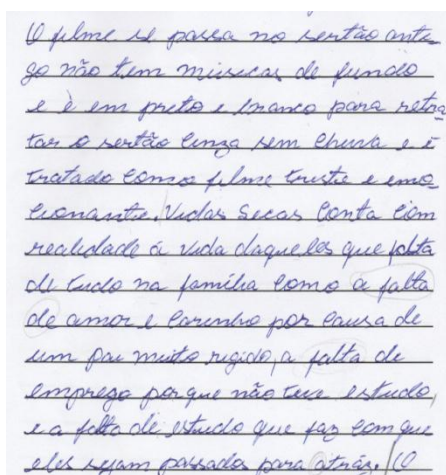 O filme se passa no sertão anti-
go não tem músicas de fundo
e è em preto e branco para retra
tar o sertão cinza sem chuva e é
tratado como filme triste e emo_
cionante. Vidas Secas conta com
realidade á vida daqueles que falta
de tudo na família como a falta
de amor e carinho por causa de
um pai muito rigido, a falta de
emprego porque não teve estudo,
e a falta de estudo que faz com que
eles sejam passados para atrás. O